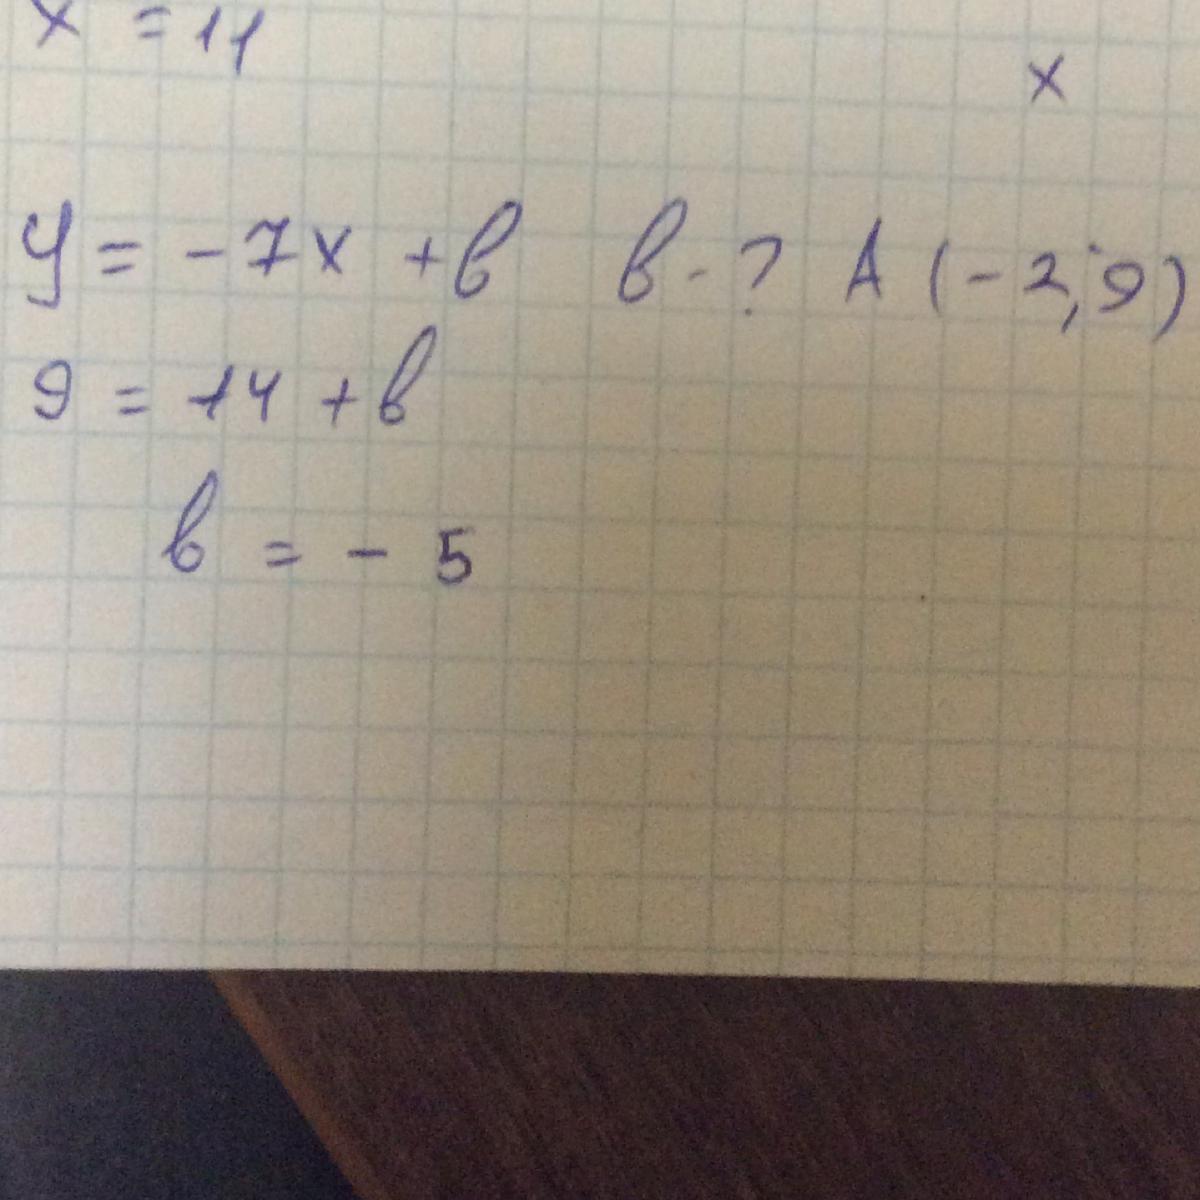 x = 11
x
y = -7x + в   в - ? А (-2; 9)
9 = 14 + в
в = - 5